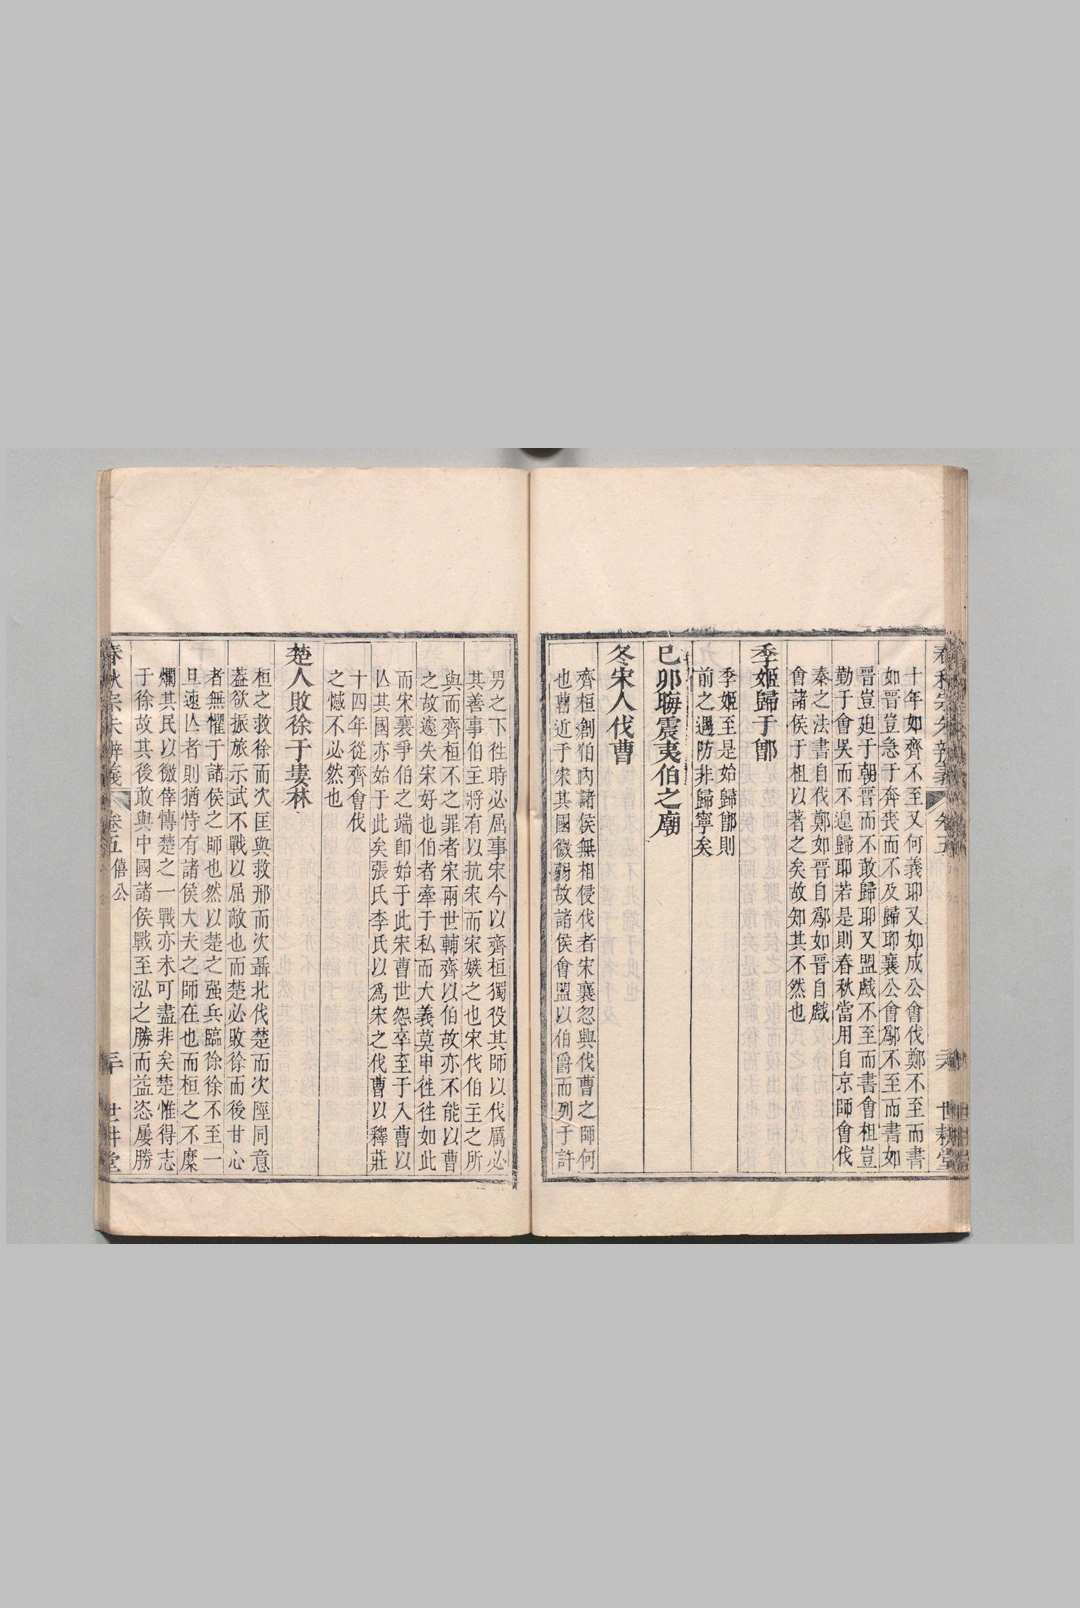 十年如齊不至又何義耶又如成公會伐鄭不至而書
如晉豈急于奔喪而不及歸耶襄公會鄬不至而書如
晉豈廹于朝晋而不敢歸耶又盟戲不至而書會柤豈
勤于會吳而不遑歸耶若是則春秋當用自京師會伐
秦之法書自伐鄭如晉自鄬如晉自戲
會諸侯于柤以著之矣故知其不然也
季姬歸于鄫
季姬至是始歸鄫則
前之遇防非歸寧矣
己卯晦震夷伯之廟
冬宋人伐曹
齊桓創伯內諸侯無相侵伐者宋襄忽與伐曹之師何
也曹近于宋其國微弱故諸侯會盟以伯爵而列于許
男之下徃時必屈事宋今以齊桓獨役其師以伐厲必
其善事伯主將有以抗宋而宋嫉之也宋伐伯主之所
與而齊桓不之罪者宋兩世輔齊以伯故亦不能以曹
之故遽失宋好也伯者牽于私而大義莫申徃徃如此
而宋襄爭伯之端卽始于此宋曹世怨卒至于入曹以
亾其國亦始于此矣張氏李氏以爲宋之伐曹以釋莊
十四年從齊會伐
之憾不必然也
楚人敗徐于婁林
桓之救徐而次匡與救邢而次聶北伐楚而次陘同意
葢欲振旅示武不戰以屈敵也而楚必敗徐而後甘心
者無懼于諸侯之師也然以楚之强兵臨徐徐不至一
旦遽亾者則猶恃有諸侯大夫之師在也而桓之不糜
爛其民以徼倖傳楚之一戰亦未可盡非矣楚惟得志
于徐故其後敢與中國諸侯戰至泓之勝而益恣屢勝
春秋宗朱辨義 卷五 僖公 三十 世耕堂